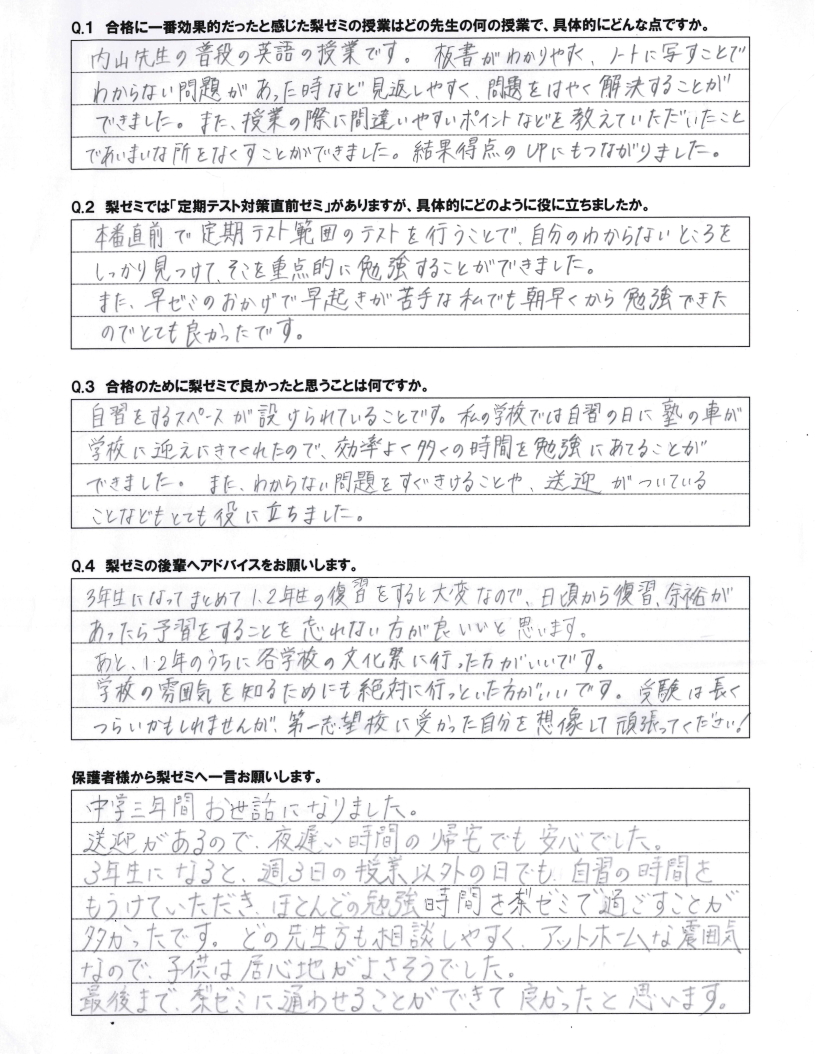 Q.1 合格に一番効果的だったと感じた梨ゼミの授業はどの先生の何の授業で、具体的にどんな点ですか。
内山先生の普段の英語の授業です。板書がわかりやすく、ノートに写すことで
わからない問題があった時など見返しやすく、問題をはやく解決することが
できました。また、授業の際に間違いやすいポイントなどを教えていただいたこと
であいまいな所をなくすことができました。結果得点のUPにもつながりました。
Q.2 梨ゼミでは「定期テスト対策直前ゼミ」がありますが、具体的にどのように役に立ちましたか。
本番直前で定期テスト範囲のテストを行うことで、自分のわからないところを
しっかり見つけて、そこを重点的に勉強することができました。
また、早ゼミのおかげで早起きが苦手な私でも朝早くから勉強できた
のでとても良かったです。
Q.3 合格のために梨ゼミで良かったと思うことは何ですか。
自習をするスペースが設けられていることです。私の学校では自習の日に塾の車が
学校に迎えにきてくれたので、効率よく多くの時間を勉強にあてることが
できました。また、わからない問題をすぐきけることや、送迎がついている
ことなどもとても役に立ちました。
Q.4 梨ゼミの後輩へアドバイスをお願いします。
3年生になってまとめて1.2年生の復習をすると大変なので、日頃から復習、余裕が
あったら予習をすることを忘れない方が良いいと思います。
あと、1.2年のうちに各学校の文化祭に行った方がいいです。
学校の雰囲気を知るためにも絶対に行っといた方がいいです。受験は長く
つらいかもしれませんが、第一志望校に受かった自分を想像して頑張ってください!
保護者様から梨ゼミへ一言お願いします。
中学三年間お世話になりました。
送迎があるので、夜遅い時間の帰宅でも安心でした。
3年生になると、週3日の授業以外の日でも、自習の時間を
もうけていただき、ほとんどの勉強時間を梨ゼミで過ごすことが
多かったです。どの先生方も相談しやすく、アットホームな雰囲気
なので、子供は居心地がよさそうでした。
最後まで、梨ゼミに通わせることができて良かったと思います。